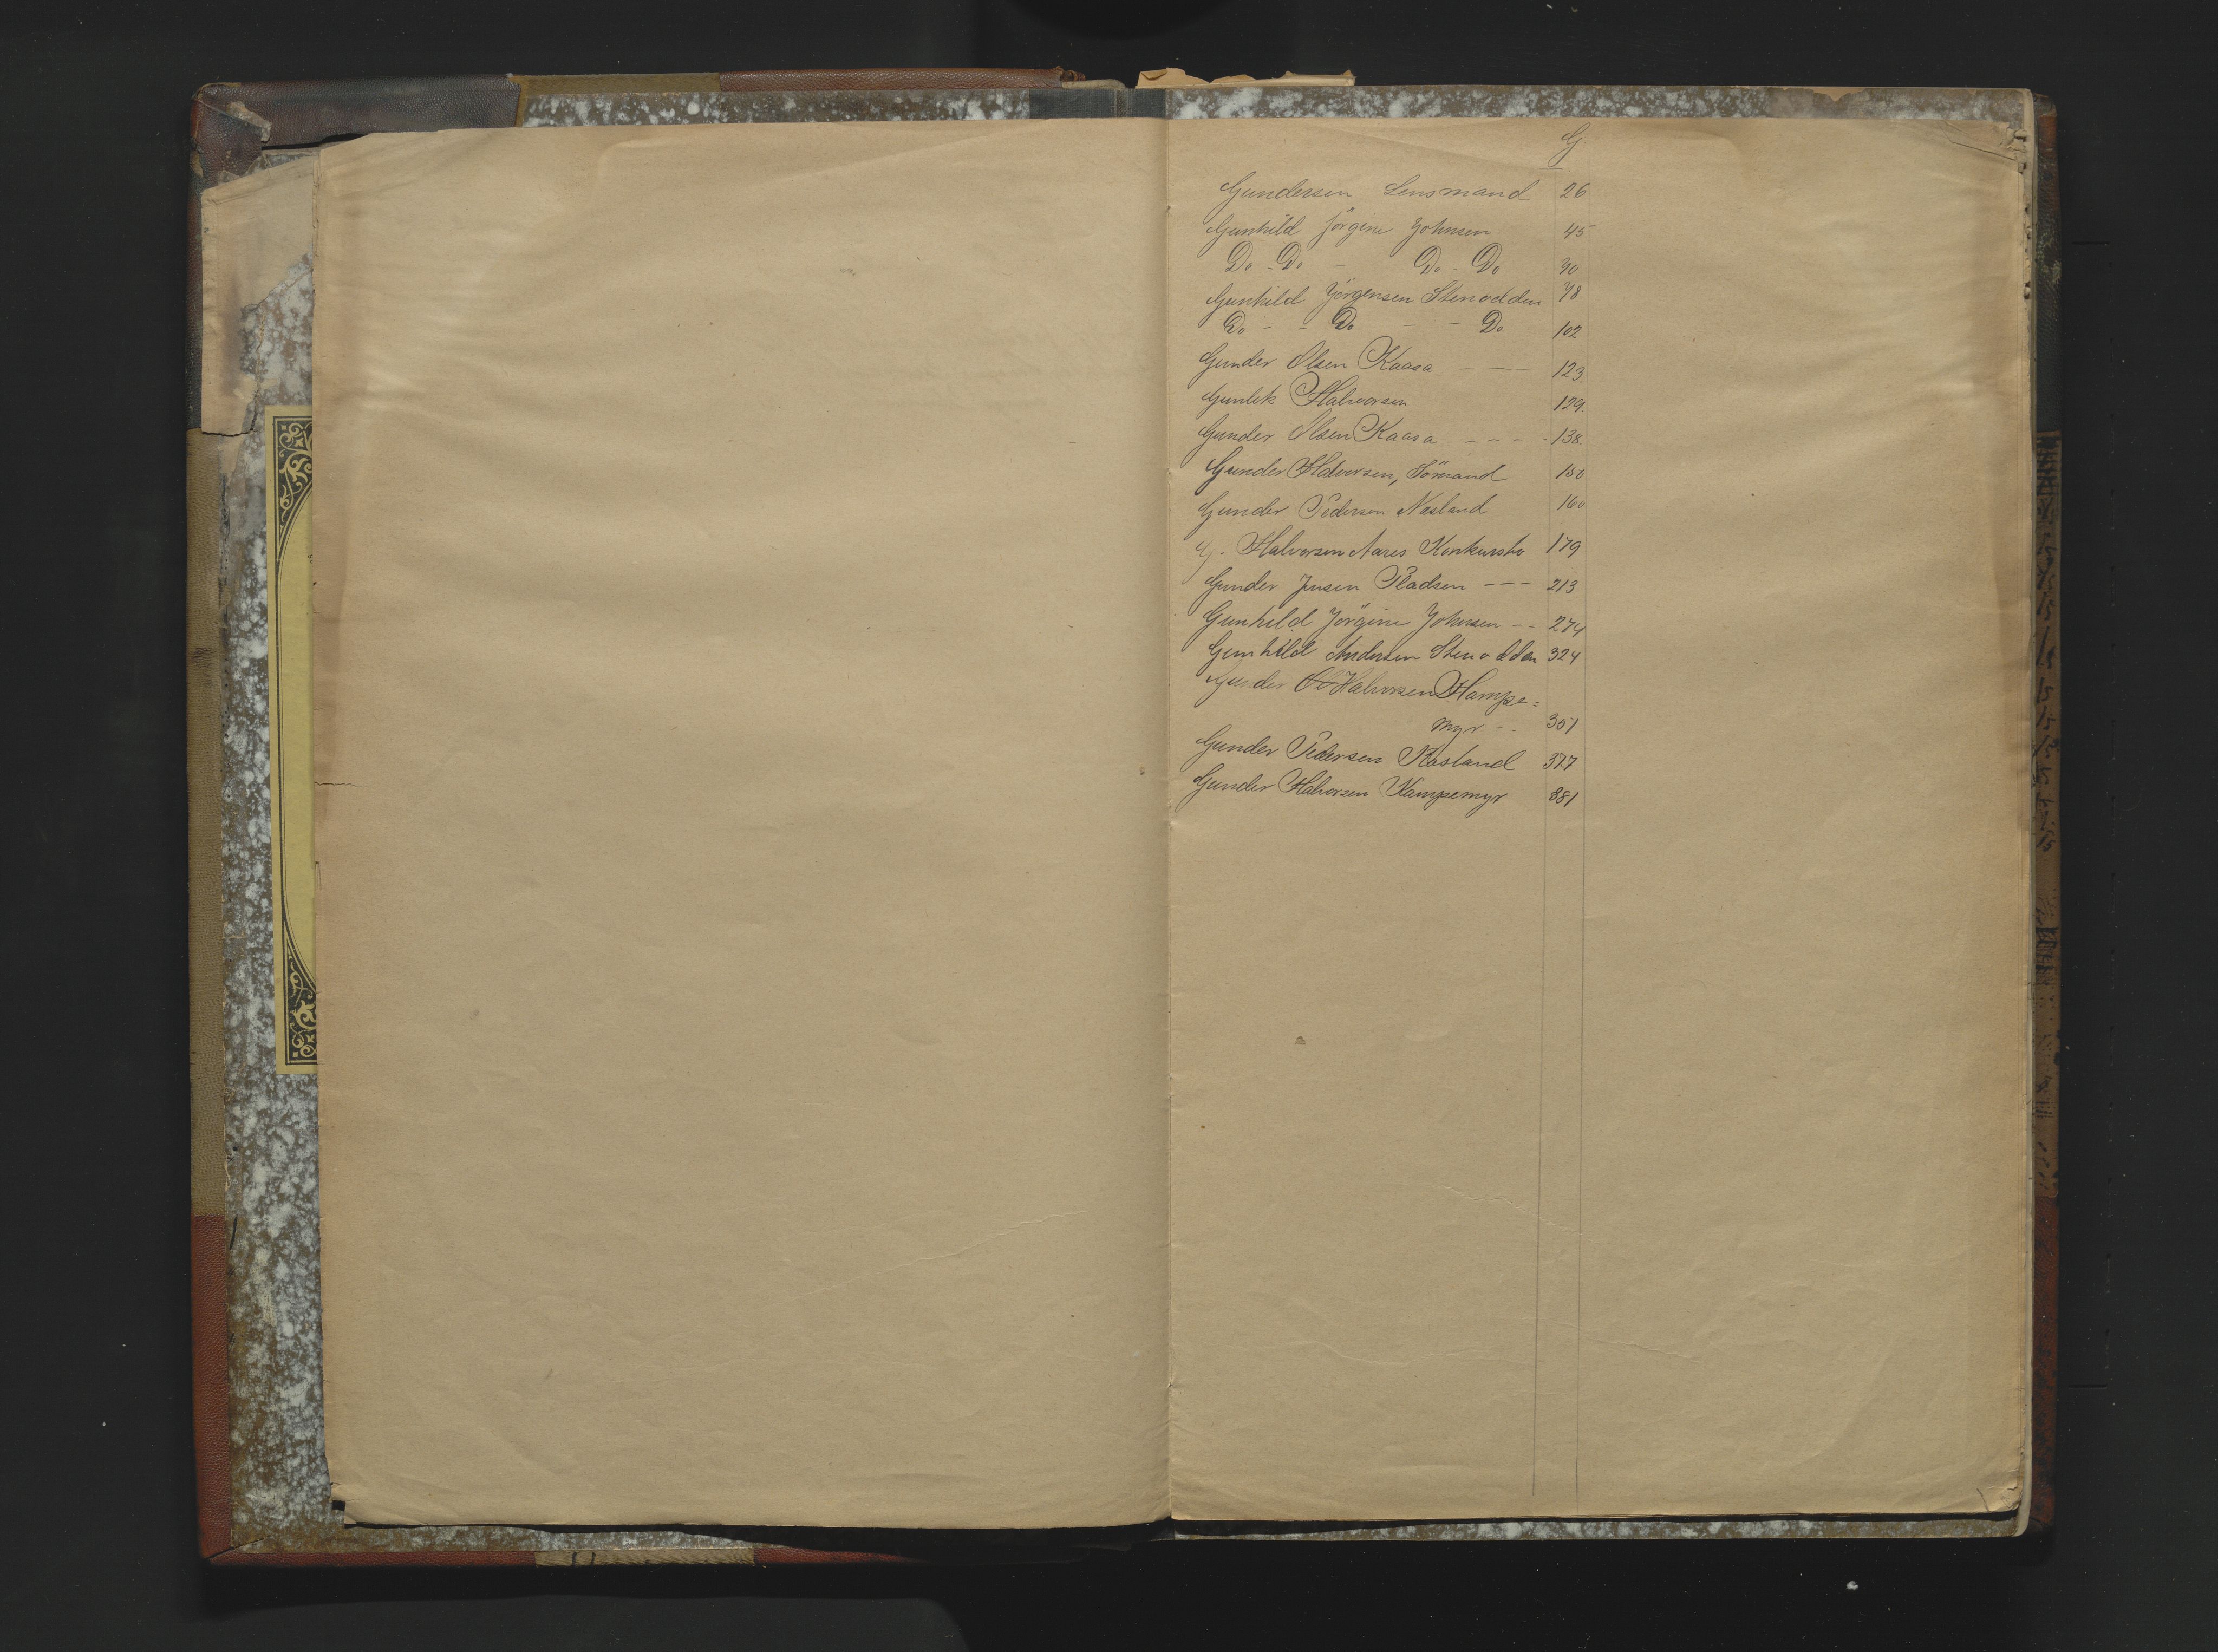 G
Gundersen Lensmand 26
Gunhild Jörgine Johnsen 45
Do - Do - Do - Do 70
Gunhild Jörgensen Stenodden 78
Do - - Do - - Do 102
Gunder Olsen Kaasa - - - 123.
Gunlek Halvorsen 129.
Gunder Olsen Kaasa - - - 138.
Gunder Halvorsen, Sömand 150
Gunder Pedersen Næsland 160
G. Halvorsen Aares Konkursbo 179
Gunder Jensen Pladsen - - - 213
Gunhild Jörgine Johnsen - - 274
Gunhild Andersen Stenodden 324
Gunder Halvorsen Hampe=
myr - - 351
Gunder Pedersen Rosland 377
Gunder Halvorsen Kampemyr 381